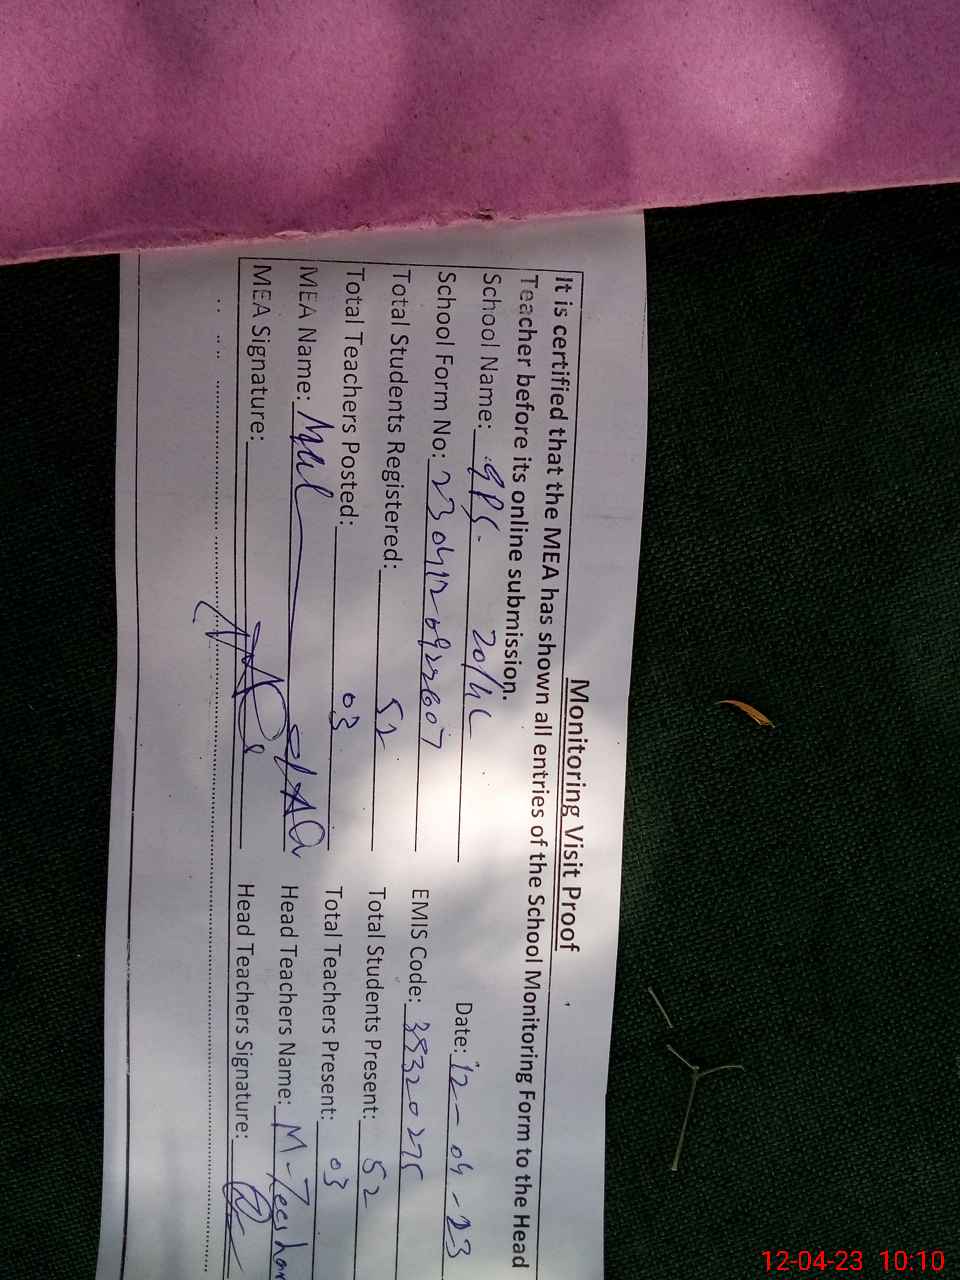 Monitoring Visit Proof
It is certified that the MEA has shown all entries of the School Monitoring Form to the Head
Teacher before its online submission.
Date: 12-04-23
School Name: GPS.
School Form No: 230412092607 EMIS Code: 38320275
Total Students Registered: 52 Total Students Present: 52
Total Teachers Posted: 03 Total Teachers Present: 03
MEA Name: Head Teachers Name: M-Zeeshan
MEA Signature: Head Teachers Signature:
12-04-23 10:10